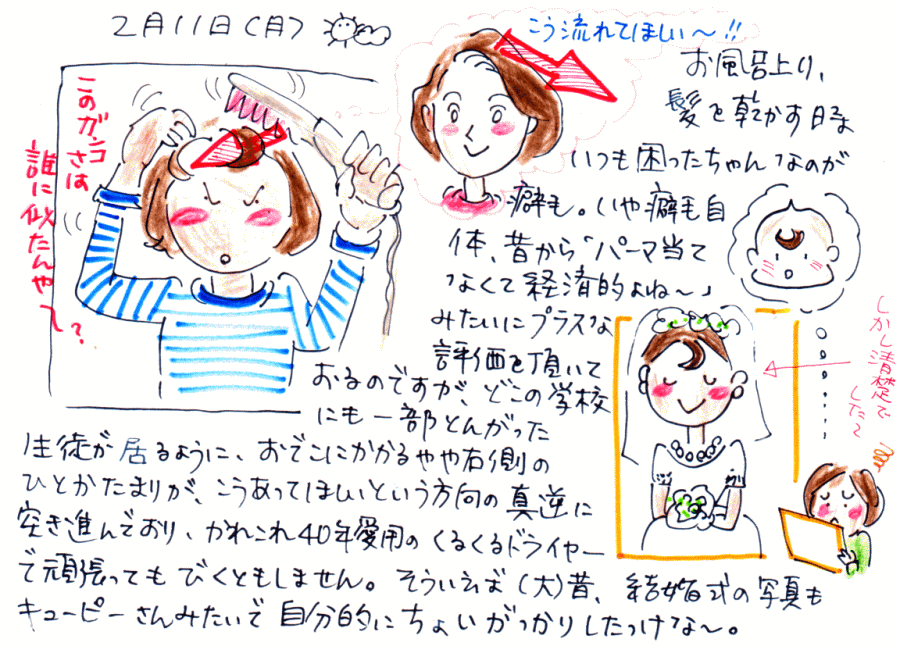 2月11日(月)
こう流れてほしい〜!!
このガンコさは
誰に似たんや〜?
お風呂上り、
髪を乾かす時
いつも困ったちゃんなのが
癖毛。いや癖毛自
体、昔から「パーマ当て
なくて経済的よね〜」
みたいにプラスな
評価を頂いて
おるのですが、どこの学校
にも一部とんがった
生徒が居るように、おでこにかかるやや右側の
ひとかたまりが、こうあってほしいという方向の真逆に
突き進んでおり、かれこれ40年愛用のくるくるドライヤー
で頑張ってもびくともしません。そういえば(大)昔、結婚式の写真も
キューピーさんみたいで自分的にちょいがっかりしたっけな〜。
しかし清楚で
したて